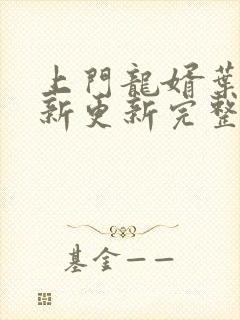 上門龍婿葉
新更新完整
基金——